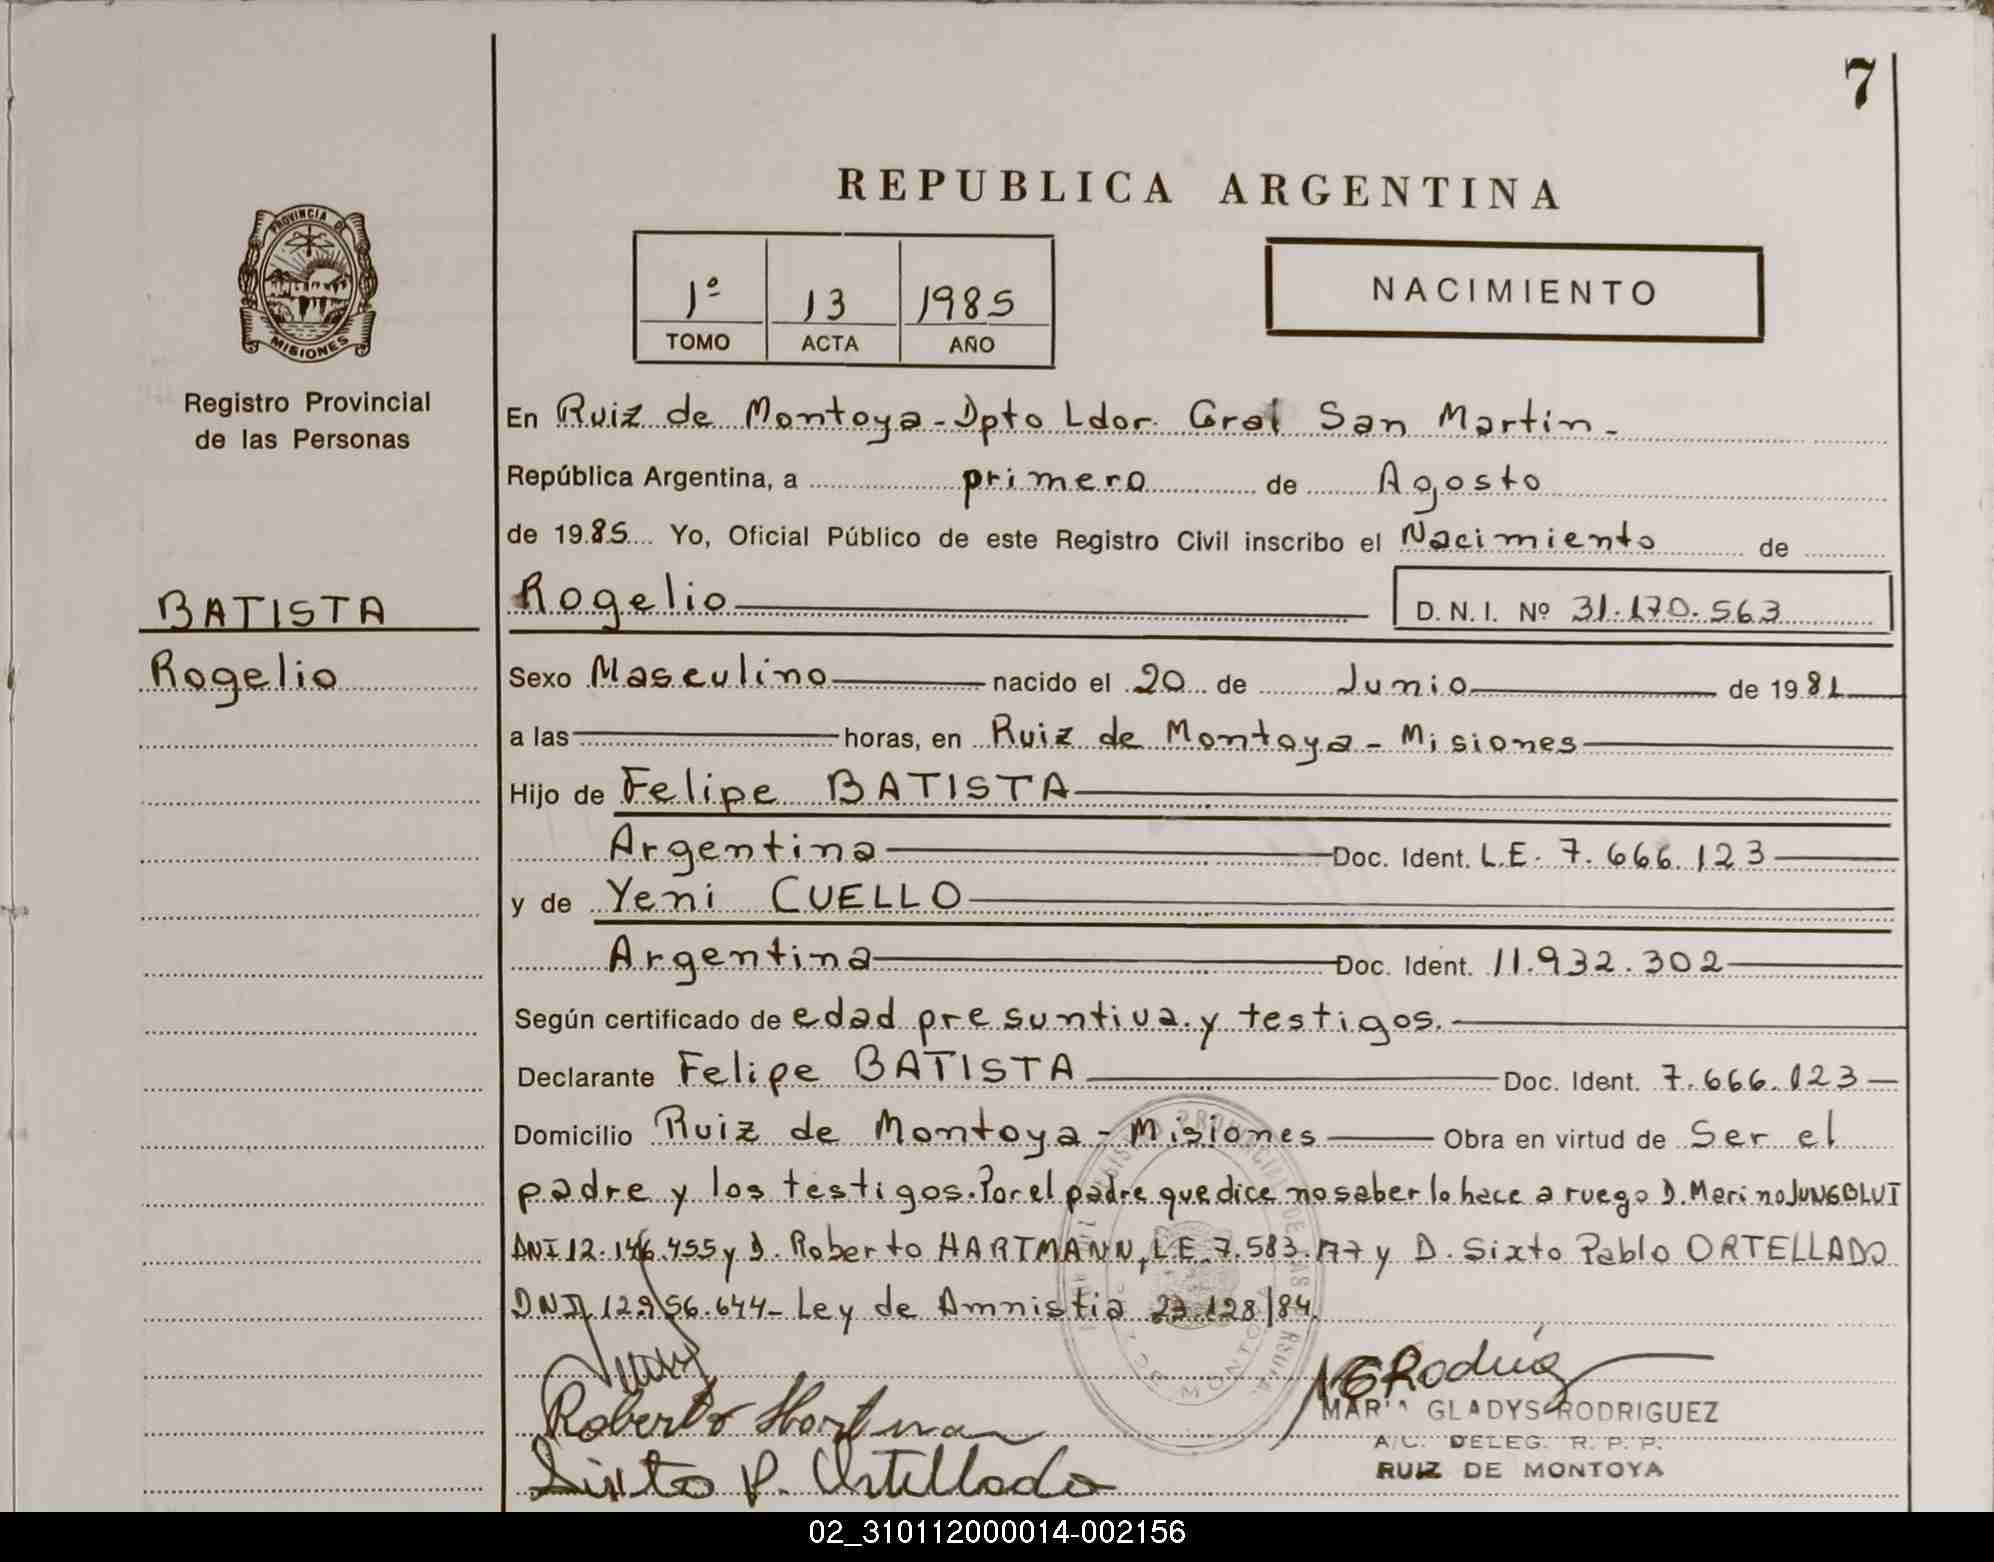 7
REPUBLICA ARGENTINA
PROVINCIA DE
MISIONES
1º 13 1985
TOMO ACTA AÑO
NACIMIENTO
Registro Provincial
de las Personas
En Ruiz de Montoya - Dpto Ldor. Gral San Martin -
República Argentina, a primero de Agosto
de 1985 Yo, Oficial Público de este Registro Civil inscribo el Nacimiento de
BATISTA
Rogelio
Rogelio D.N.I. Nº 31.170.563
Sexo Masculino nacido el 20 de Junio de 1981
a las horas, en Ruiz de Montoya - Misiones
Hijo de Felipe BATISTA
Argentina Doc. Ident. L.E. 7.666.123
y de Yeni CUELLO
Argentina Doc. Ident. 11.932.302
Según certificado de edad presuntiva y testigos.
Declarante Felipe BATISTA Doc. Ident. 7.666.123
Domicilio Ruiz de Montoya - Misiones Obra en virtud de Ser el
padre y los testigos. Por el padre que dice no saber lo hace a ruego D. Marino JUNGBLUT
DNI 12.146.455 y D. Roberto HARTMANN, L.E. 7.583.177 y D. Sixto Pablo ORTELLADO
DNI 12.956.644 - Ley de Amnistia 23.128/84.
Roberto Hartman
Sixto P. Ortellado
MARIA GLADYS RODRIGUEZ
A/C. DELEG. R. P. P.
RUIZ DE MONTOYA
02_310112000014-002156